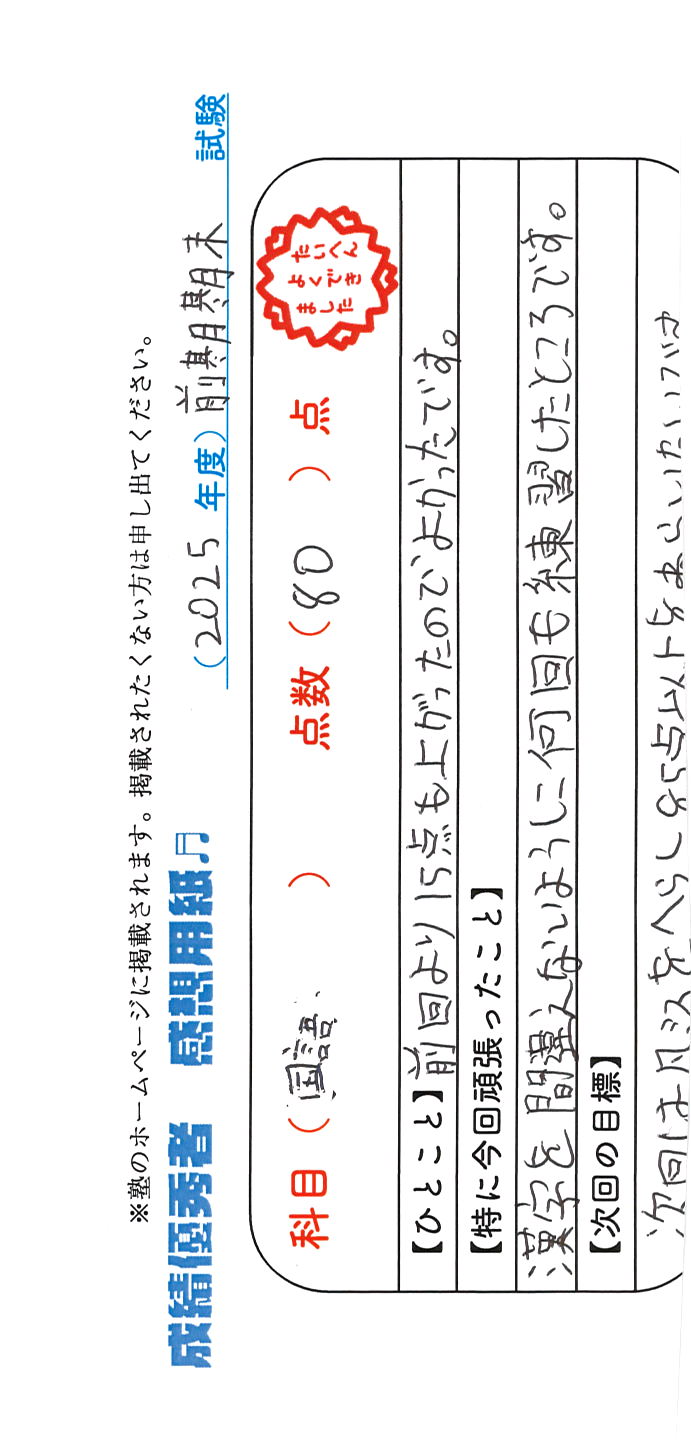 ※塾のホームページに掲載されます。掲載されたくない方は申し出てください。
成績優秀者 感想用紙♫
（2025 年度）前期期末 試験
科目（国語 ） 点数（80 ）点
たいへん
よくでき
ました
【ひとこと】前回より15点も上がったのでよかったです。
【特に今回頑張ったこと】
漢字を間違えないように何回も練習したところです。
【次回の目標】
次回は凡ミスをへらし85点以上をねらいたいです